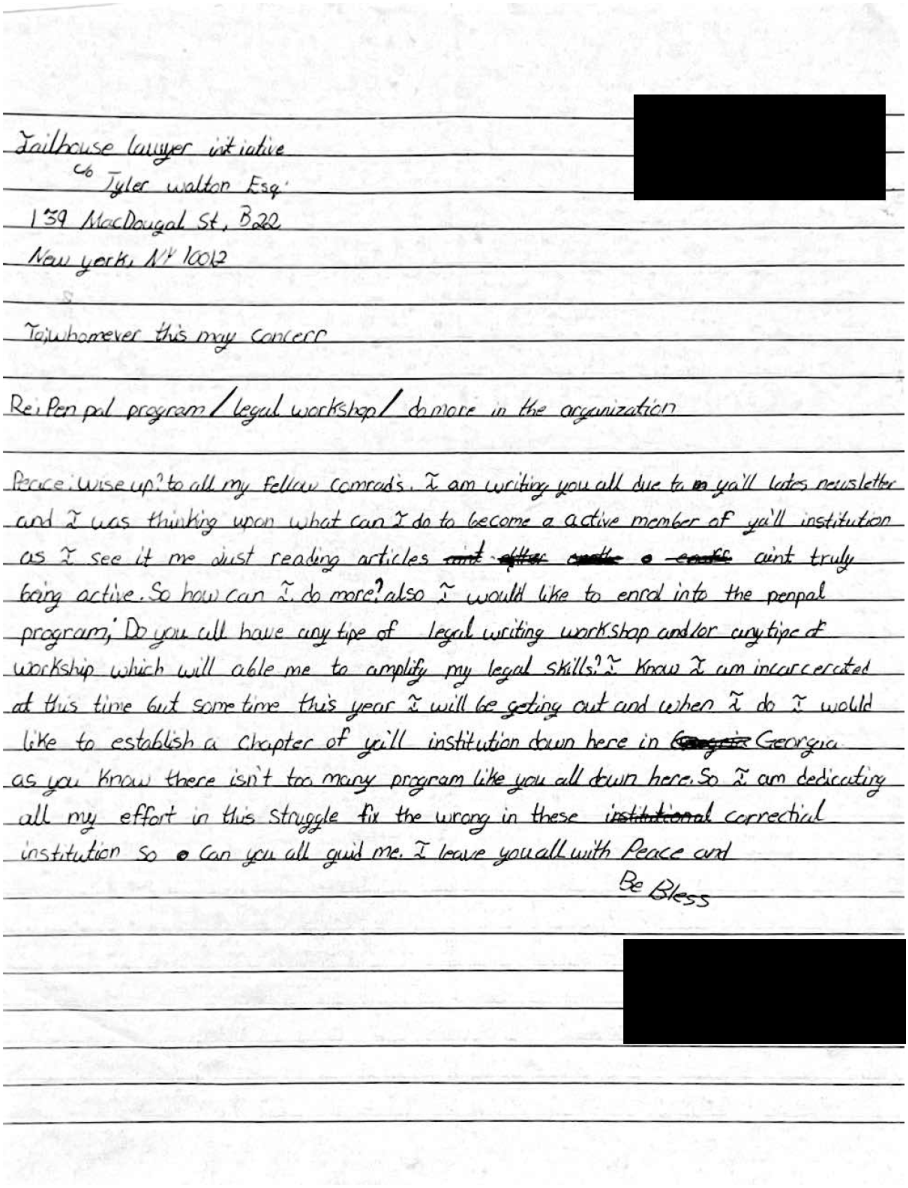 Jailhouse lawyer initiative
c/o Tyler walton Esq.
139 MacDougal St, B22
New york, NY 10012
To; whomever this may Concern
Re; Pen pal program / legal workshop / do more in the organization
Peace; wise up? to all my fellow comrads. I am writing you all due to ya'll lates newsletter
and I was thinking upon what can I do to become a active member of ya'll institution
as I see it me just reading articles aint truly
being active. So how can I do more? also I would like to enrol into the penpal
program; Do you all have any tipe of legal writing workshop and/or any tipe of
workship which will able me to amplify my legal skills? I know I am incarcerated
at this time but some time this year I will be geting out and when I do I would
like to establish a chapter of ya'll institution down here in Georgia
as you know there isn't too many program like you all down here. So I am dedicating
all my effort in this struggle fix the wrong in these institutional correctial
institution so can you all guid me. I leave you all with Peace and
Be Bless